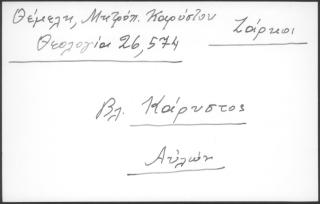 Θέμελη, Μητρόπ. Καρύστου
Θεολογία 26,574
Ζάρκοι
Βλ. Κάρυστος
Αὐλών